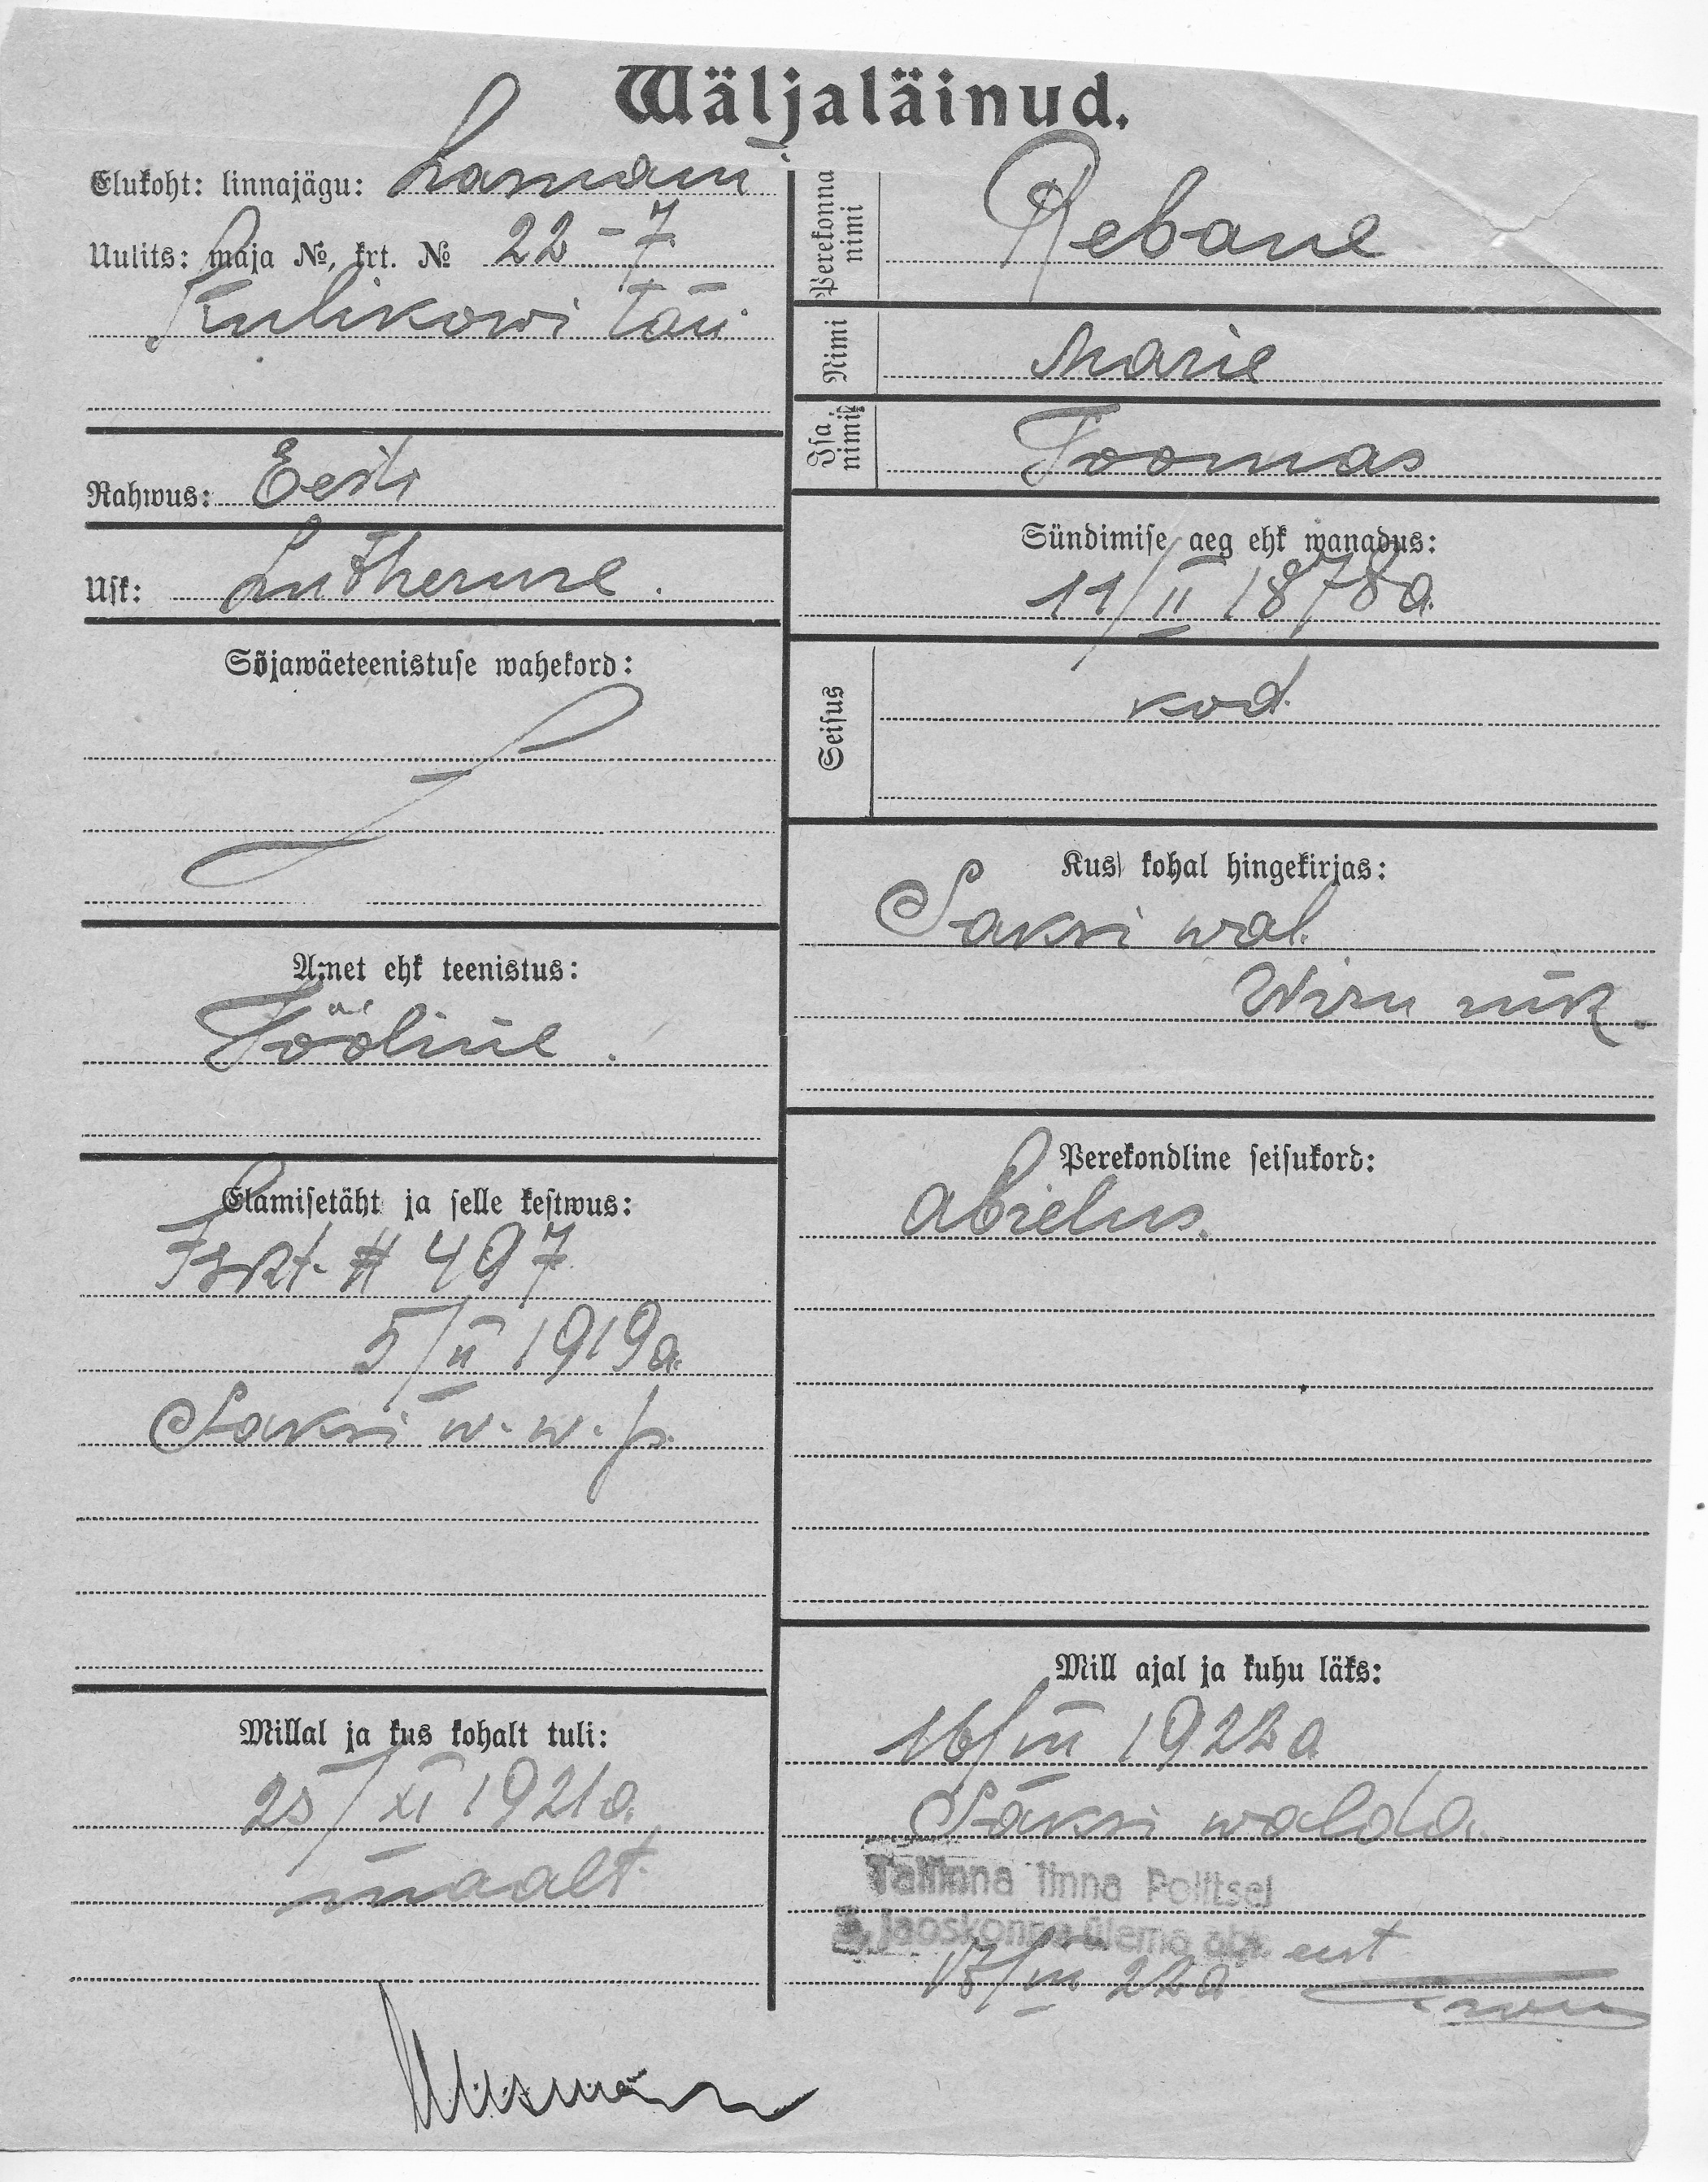 Wäljaläinud.
Elukoht: linnajägu: Lasnam
Uulits: maja №, krt. № 22 - 7
Kulikowi tän.
Rahwus: Eesti
Usk: Lutherune.
Sõjawäeteenistuse wahekord:
Amet ehk teenistus:
Tööline.
Elamisetäht ja selle kestwus:
Iskt. # 497
5/II 1919a.
Saksi w. w. p.
Millal ja kus kohalt tuli:
25/XI 1921a.
maalt.
Perekonna nimi
Rebane
Nimi
Marie
Isa nimi
Toomas
Sündimise aeg ehk wanadus:
11/II 1878a.
Seisus
kod.
Kus kohal hingekirjas:
Saksi wal.
Wiru mk.
Perekondline seisukord:
abielus.
Mill ajal ja kuhu läks:
16/III 1922a
Saksi walda.
Tallinna linna Politsei
3. jaoskonna ülema abi. eest
17/III 22a